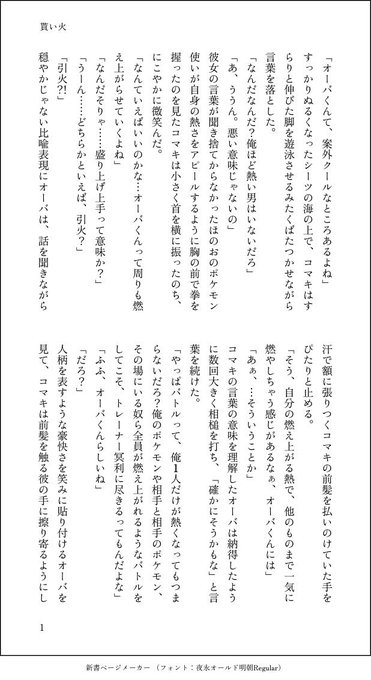 貰い火
「オーバくんて、案外クールなところあるよね」
すっかりぬるくなったシーツの海の上で、コマキはす
らりと伸びた脚を遊泳させるみたくばたつかせながら
言葉を落とした。
「なんだなんだ？俺ほど熱い男はいないだろ」
「あ、ううん。悪い意味じゃないの」
彼女の言葉が聞き捨てならなかったほのおのポケモン
使いが自身の熱さをアピールするように胸の前で拳を
握ったのを見たコマキは小さく首を横に振ったのち、
にこやかに微笑んだ。
「なんていえばいいのかな…オーバくんって周りも燃
え上がらせていくよね」
「なんだそりゃ……盛り上げ上手って意味か？」
「うーん……どちらかといえば、引火？」
「引火?!」
穏やかじゃない比喩表現にオーバは、話を聞きながら
汗で額に張りつくコマキの前髪を払いのけていた手を
ぴたりと止める。
「そう、自分の燃え上がる熱で、他のものまで一気に
燃やしちゃう感じがあるなぁ、オーバくんには」
「あぁ、…そういうことか」
コマキの言葉の意味を理解したオーバは納得したよう
に数回大きく相槌を打ち、「確かにそうかもな」と言
葉を続けた。
「やっぱバトルって、俺1人だけが熱くなってもつま
らないだろ？俺のポケモンや相手と相手のポケモン、
その場にいる奴ら全員が燃え上がれるようなバトルを
してこそ、トレーナー冥利に尽きるってもんだよな」
「ふふ、オーバくんらしいね」
「だろ？」
人柄を表すような豪快さを笑みに貼り付けるオーバを
見て、コマキは前髪を触る彼の手に擦り寄るようにし
1
新書ページメーカー（フォント：夜永オールド明朝Regular）